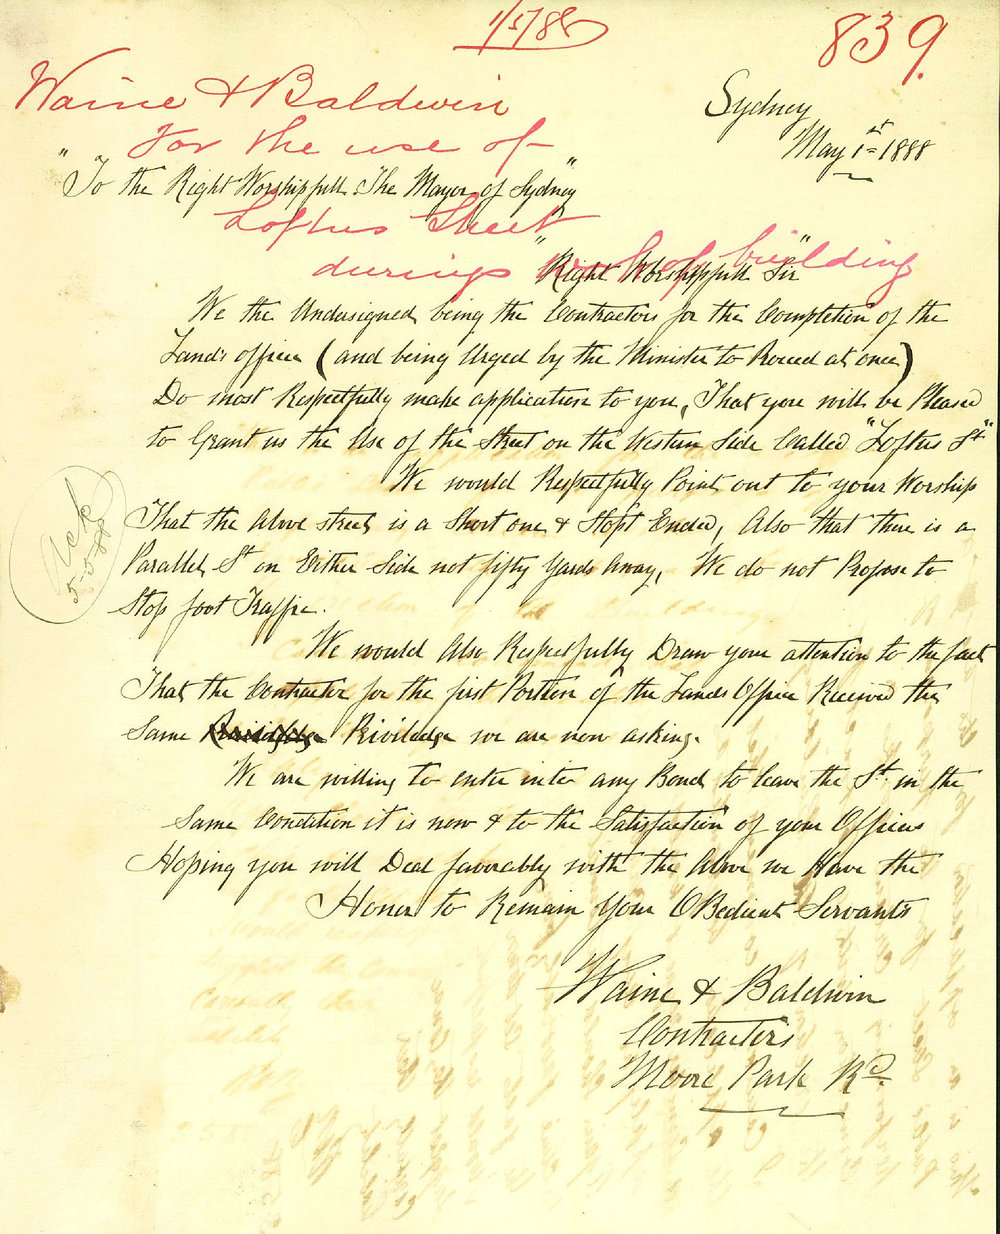 1/5/88
839.
Waine & Baldwin
For the use of
Loftus Street
during work of building
Sydney
May 1st 1888
"To the Right Worshipfull The Mayor of Sydney"
"Right Worshippfull Sir"
We the Undersigned being the Contractors for the Completion of the
Lands office (and being Urged by the Minister to Proceed at once)
Do most Respectfully make application to you, That you will be Pleased
to Grant us the Use of the Street on the Western Side Called "Loftus St"
We would Respectfully Point out to your Worship
That the Above street is a Short one & Stopt Ended, Also that there is a
Parallel St on Either Side not fifty Yards Away, We do not Propose to
Stop foot Traffic.
We would Also Respectfully Draw your attention to the fact
That the Contractor for the first Portion of the Lands Office Received the
Same Priviledge we are now asking.
We are willing to enter into any Bond to leave the St in the
Same Condition it is now & to the Satisfaction of your Officers
Hoping you will Deal favorably with the Above we Have the
Honor to Remain Your OBedient Servants
Waine & Baldwin
Contractors
Moore Park Rd.
Ack
5-5-88